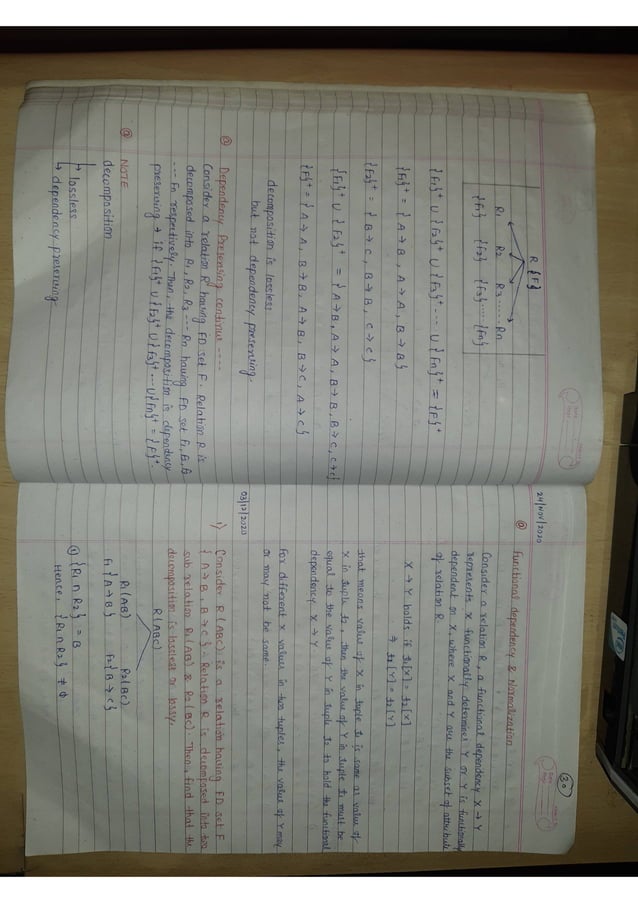 R {F}
R1 R2 R3 ..... Rn
{F1} {F2} {F3} ..... {Fn}
{F1}⁺ U {F2}⁺ U {F3}⁺ --- U {Fn}⁺ = {F}⁺
{F1}⁺ = { A → B , A → A , B → B }
{F2}⁺ = { B → C , B → B , C → C }
{F1}⁺ U {F2}⁺ = { A → B, A → A, B → B, B → C, C → C }
{F}⁺ = { A → A, B → B, A → B, B → C, A → C }
decomposition is lossless
but not dependency preserving
@ Dependency Preserving continue -----
Consider a relation R having FD set F. Relation R is
decomposed into R1, R2, R3 --- Rn having FD set F1, F2, F3
--- Fn respectively. Then, the decomposition is dependency
preserving → if {F1}⁺ U {F2}⁺ U {F3}⁺ --- U {Fn}⁺ = {F}⁺.
@ NOTE
decomposition
↳ lossless
↳ dependency preserving
30
24/NOV/2020
@ Functional dependency & Normalization
Consider a relation R, a functional dependency X → Y
represents X functionally determines Y or Y is functionally
dependent on X, where X and Y are the subset of attribute
of relation R.
X → Y holds if t1[X] = t2[X]
⇒ t1[Y] = t2[Y]
that means value of X in tuple t1 is same as value of
X in tuple t2, then the value of Y in tuple t1 must be
equal to the value of Y in tuple t2 to hold the functional
dependency X → Y
For different X values in two tuples, the value of Y may
or may not be same.
03/12/2020
1) Consider R (ABC) is a relation having FD set F
{ A → B, B → C }. Relation R is decomposed into two
sub relation R1(AB) & R2(BC). Then, find that the
decomposition is lossless or lossy.
R(ABC)
R1(AB) R2(BC)
F1 { A → B } F2 { B → C }
① {R1 ∩ R2} = B
Hence, {R1 ∩ R2} ≠ ϕ